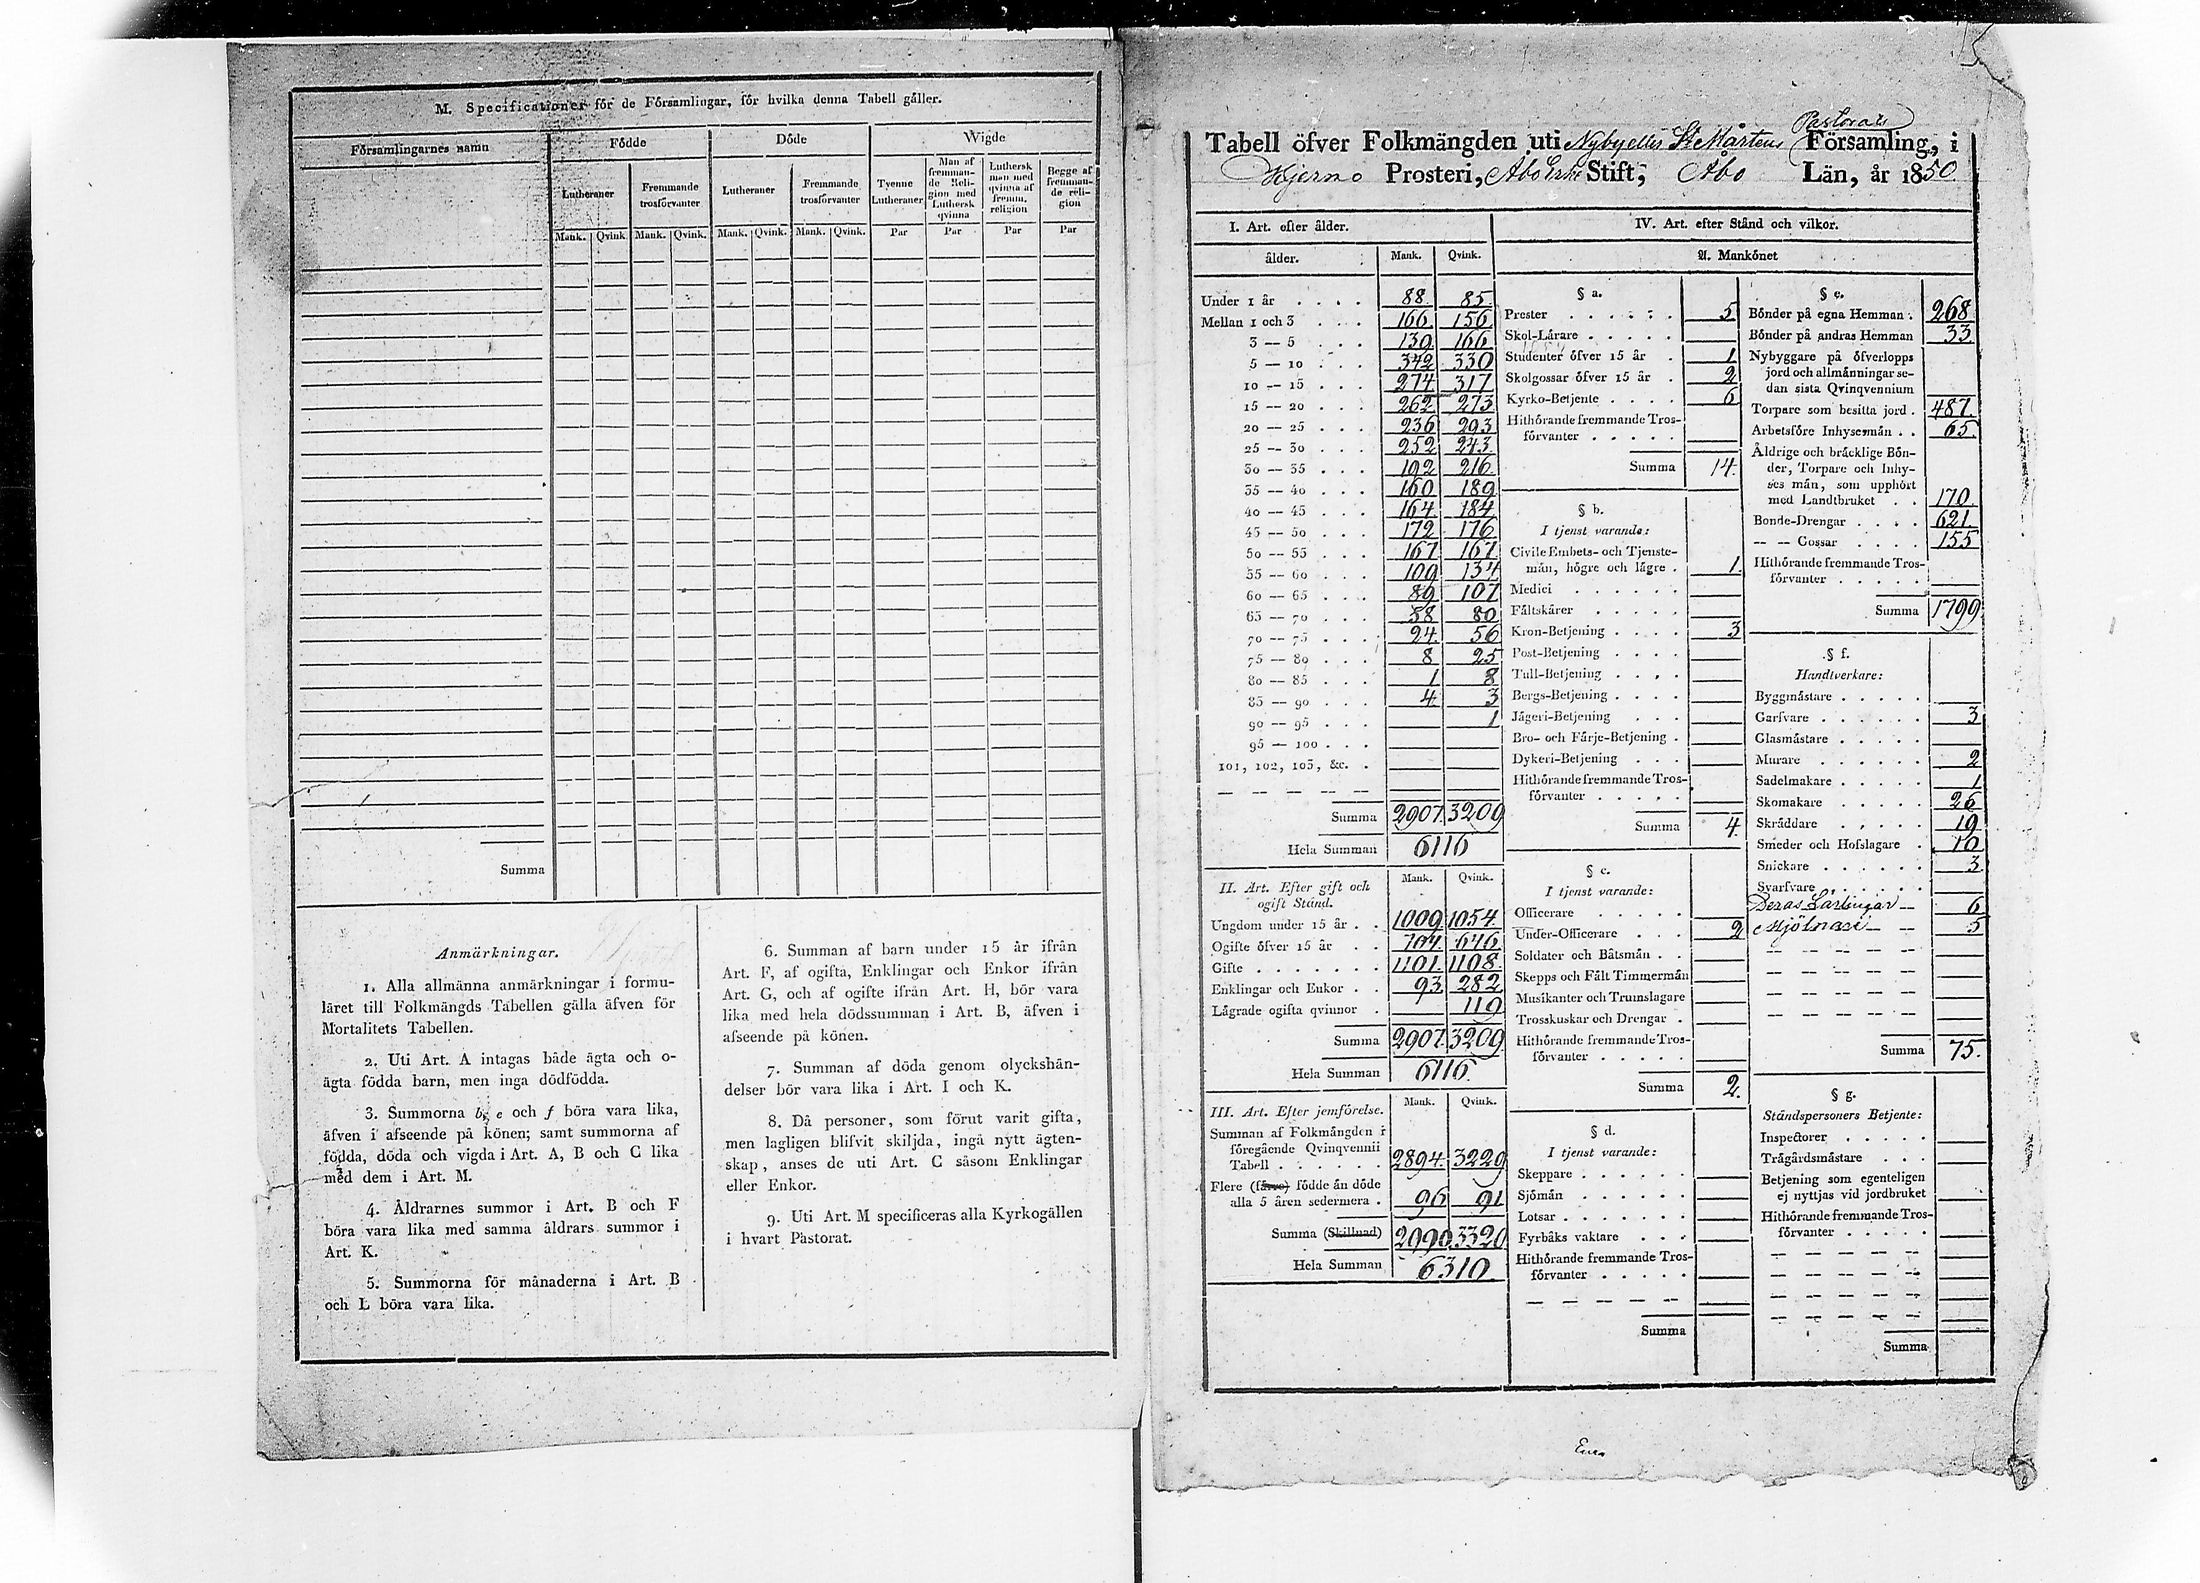 M. Specificationer för de Församlingar, för hvilka denna Tabell gäller.
Församlingarnes namn
Födde
Döde
Wigde
Lutheraner
Fremmande trosförvanter
Lutheraner
Fremmande trosförvanter
Tvenne Lutheraner
Man af fremmande Religion med Luthersk qvinna
Luthersk man med qvinna af fremm. religion
Begge af fremmande religion
Mank. Qvink. Mank. Qvink. Mank. Qvink. Mank. Qvink. Par Par Par Par
Summa
Anmärkningar.
1. Alla allmänna anmärkningar i formu-
läret till Folkmängds Tabellen gälla äfven för
Mortalitets Tabellen.
2. Uti Art. A intagas både ägta och o-
ägta födda barn, men inga dödfödda.
3. Summorna b, e och f böra vara lika,
äfven i afseende på könen; samt summorna af
födda, döda och vigda i Art. A, B och C lika
med dem i Art. M.
4. Åldrarnes summor i Art. B och F
böra vara lika med samma åldrars summor i
Art. K.
5. Summorna för månaderna i Art. B
och L böra vara lika.
6. Summan af barn under 15 år ifrån
Art. F, af ogifta, Enklingar och Enkor ifrån
Art. G, och af ogifte ifrån Art. H, bör vara
lika med hela dödssumman i Art. B, äfven i
afseende på könen.
7. Summan af döda genom olyckshän-
delser bör vara lika i Art. I och K.
8. Då personer, som förut varit gifta,
men lagligen blifvit skiljda, ingå nytt ägten-
skap, anses de uti Art. C såsom Enklingar
eller Enkor.
9. Uti Art. M specificeras alla Kyrkogällen
i hvart Pastorat.
Pastorats
Tabell öfver Folkmängden uti Nyby eller St Mårtens Församling, i
Prosteri, Åbo Erke Stift, Åbo Län, år 1850.
I. Art. efter ålder.
ålder. Mank. Qvink.
Under 1 år . . . . 88. 85.
Mellan 1 och 3 . . . 166. 156.
3 — 5 . . . 139. 166
5 — 10 . . . 342. 330
10 — 15 . . . 274. 317
15 — 20 . . . 262. 273
20 — 25 . . . 236 293
25 — 30 . . . 252 243.
30 — 35 . . . 192 216.
35 — 40 . . . 160 189
40 — 45 . . . 164. 184
45 — 50 . . . 172 176
50 — 55 . . . 167. 167
55 — 60 . . . 109 134
60 — 65 . . . 89 107
65 — 70 . . . 58 80
70 — 75 . . . 24. 56
75 — 80 . . . 8 25
80 — 85 . . . 1 8
85 — 90 . . . 4. 3
90 — 95 . . . 1
95 — 100 . . .
101, 102, 103, &c. .
Summa 2907. 3209
Hela Summan 6116
II. Art. Efter gift och
ogift Stånd.
Mank. Qvink.
Ungdom under 15 år . . 1009. 1054.
Ogifte öfver 15 år . . 704. 646
Gifte . . . . . . . 1101. 1108.
Enklingar och Enkor . . 93. 282
Lägrade ogifta qvinnor . 119
Summa 2907. 3209.
Hela Summan 6116.
III. Art. Efter jemförelse. Mank. Qvink.
Summan af Folkmängden i
föregående Qvinqvennii
Tabell . . . . . . 2894. 3229
Flere (färre) födde än döde
alla 5 åren sedermera . 96 91
Summa (Skillnad) 2990. 3320
Hela Summan 6310.
IV. Art. efter Stånd och vilkor.
A. Mankönet
§ a.
Prester . . . . . . 5.
Skol-Lärare . . . . .
Studenter öfver 15 år . 1
Skolgossar öfver 15 år . 2
Kyrko-Betjente . . . . 6
Hithörande fremmande Tros-
förvanter . . . . .
Summa 14.
§ b.
I tjenst varande:
Civile Embets- och Tjenste-
män, högre och lägre . 1.
Medici . . . . . .
Fältskärer . . . . .
Kron-Betjening . . . . 3
Post-Betjening . . . .
Tull-Betjening . . . .
Bergs-Betjening . . . .
Jägeri-Betjening . . .
Bro- och Färje-Betjening .
Dykeri-Betjening . . .
Hithörande fremmande Tros-
förvanter . . . . .
Summa 4.
§ c.
I tjenst varande:
Officerare . . . . .
Under-Officerare . . . 2
Soldater och Båtsmän . .
Skepps och Fält Timmermän
Musikanter och Trumslagare
Trosskuskar och Drengar .
Hithörande fremmande Tros-
förvanter . . . . .
Summa 2.
§ d.
I tjenst varande:
Skeppare . . . . . .
Sjömän . . . . . .
Lotsar . . . . . . .
Fyrbåks vaktare . . .
Hithörande fremmande Tros-
förvanter . . . . .
Summa
§ e.
Bönder på egna Hemman . 268
Bönder på andras Hemman 33.
Nybyggare på öfverlopps
jord och allmänningar se-
dan sista Qvinqvennium
Torpare som besitta jord . 487.
Arbetsföre Inhysesmän . . 65.
Äldrige och bräcklige Bön-
der, Torpare och Inhy-
ses män, som upphört
med Landtbruket . . 170.
Bonde-Drengar . . . . 621.
— — Gossar . . . . 155
Hithörande fremmande Tros-
förvanter . . . . .
Summa 1799.
§ f.
Handtverkare:
Byggmästare . . . . .
Garfvare . . . . . . 3
Glasmästare . . . . .
Murare . . . . . . 2
Sadelmakare . . . . . 1
Skomakare . . . . . 26
Skräddare . . . . . 19
Smeder och Hofslagare . 10
Snickare . . . . . . 3.
Svarfvare . . . . . .
Deras Lärlingar — 6
Mjölnare — — 5
Summa 75.
§ g.
Ståndspersoners Betjente:
Inspectorer . . . . .
Trägårdsmästare . . .
Betjening som egenteligen
ej nyttjas vid jordbruket
Hithörande fremmande Tros-
förvanter . . . . .
Summa